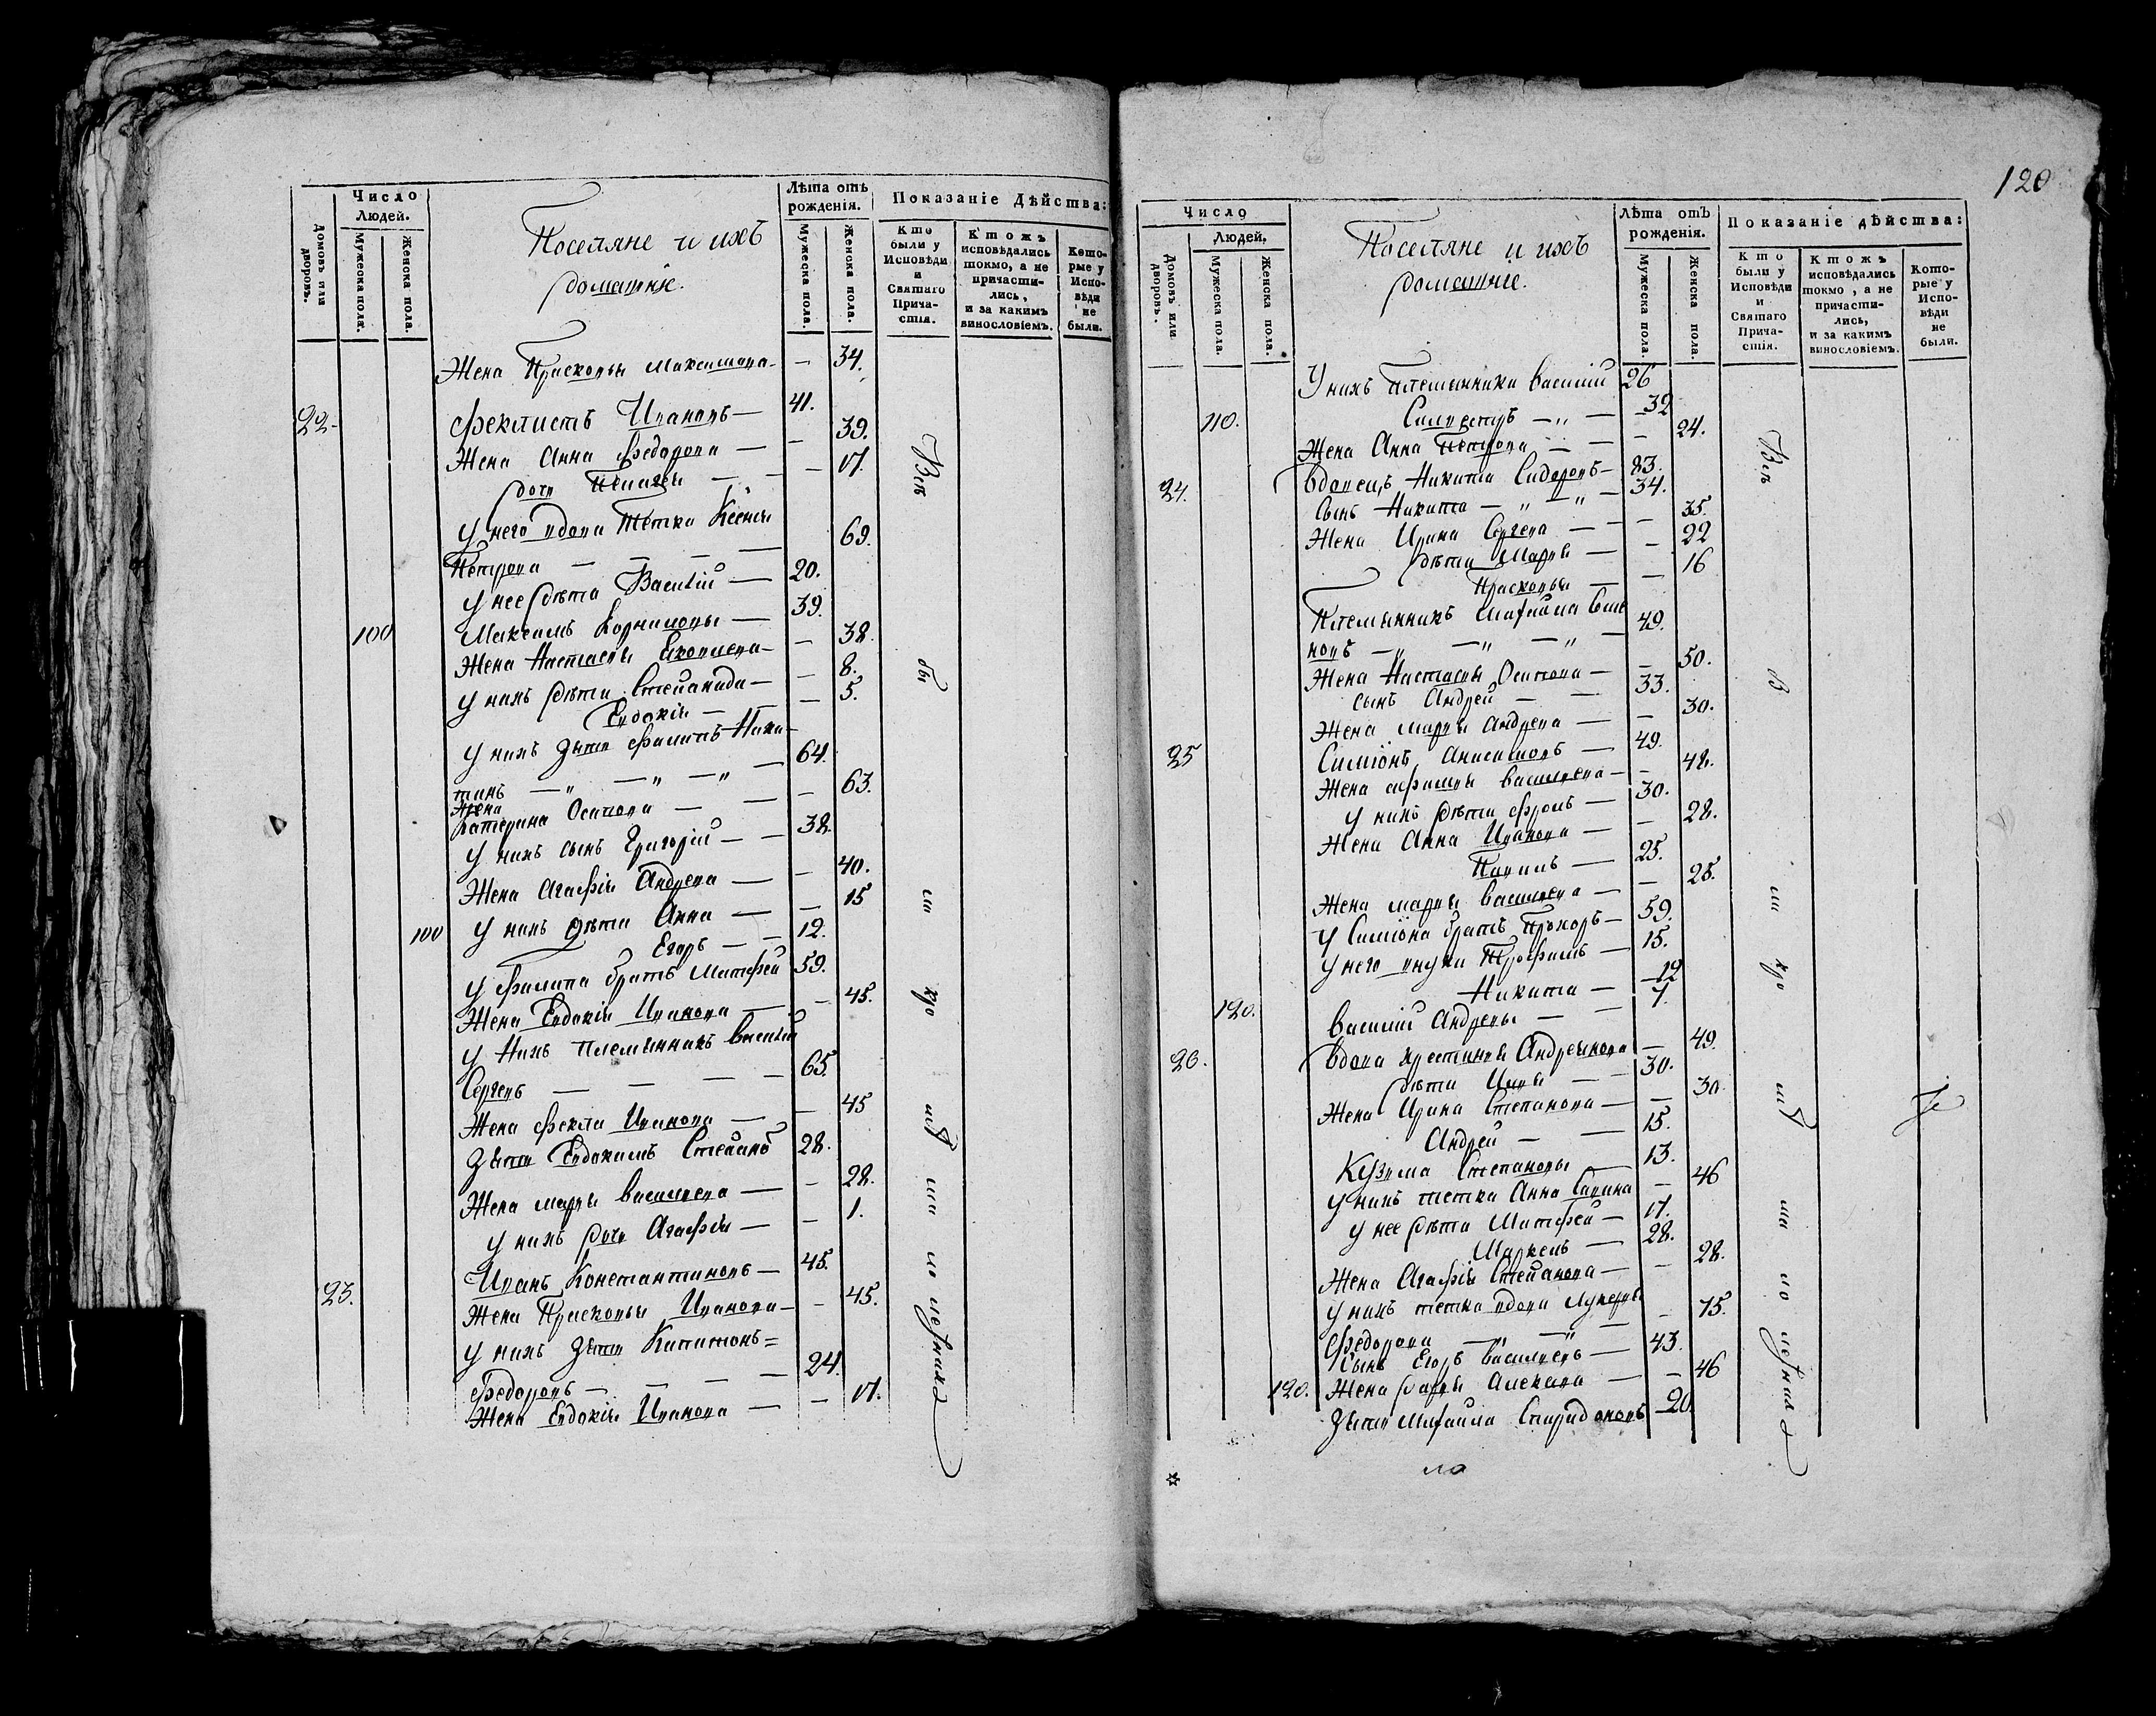 Число
Людей.
Домовъ или дворовъ.
Мужеска пола.
Женска пола.
Поселяне и ихъ
домашніе.
Лѣта отъ
рожденія.
Мужеска пола.
Женска пола.
Показаніе Дѣйства:
Кто были у Исповѣди и Святаго Прича-стія.
К тожъ исповѣдались токмо, а не причасти-лись, и за какимъ винословіемъ.
Кото-рые у Испо-вѣди не были.
Жена Прасковья Максимова — 34.
22. Феклистъ Ивановъ — 41.
Жена Анна Федорова — 39.
дочь Пелагея — 17.
У него вдова тетка Ксенья
Петрова — 69.
У нее дѣти Василій — 20.
100 Максимъ Корниловъ — 39.
Жена Настасья — 38.
У нихъ дѣти Степанида — 8.
Евдокія — 5.
У нихъ зять Филипъ Ники-
тинъ — „ — „ — „ — 64.
Жена
Катерина Осипова — 63.
У нихъ сынъ Григорій — 38.
Жена Агафія Андрева — 40.
100 У нихъ дѣти Анна — 15
Егоръ — 12.
У Филипа братъ Матфей 59.
Жена Евдокія Иванова — 45.
У Нихъ племянникъ Василій
Сергевъ — 65.
Жена Фекла Иванова — 45
Зять Евдокимъ Степановъ 28.
Жена Марья Васильева — 28.
У нихъ дочь Агафія — 1.
23. Иванъ Константиновъ — 45.
Жена Прасковья Иванова — 45.
У нихъ зять Капитонъ =
Федоровъ — 24.
Жена Евдокія Иванова — 17.
Всѣ
бы
ли
кро
мѣ
ма
ло
лѣтнихъ
120
Число
Людей.
Домовъ или дворовъ.
Мужеска пола.
Женска пола.
Поселяне и ихъ
домашніе.
Лѣта отъ
рожденія.
Мужеска пола.
Женска пола.
Показаніе дѣйства:
Кто были у Исповѣди и Святаго Прича-стія.
К тожъ исповѣдались токмо, а не причасти-лись, и за какимъ винословіемъ.
Кото-рые у Испо-вѣди не были.
У нихъ племянники Василій 26
110. Силвестръ — „ — 32
Жена Анна Петрова — 24.
24. Вдовецъ Никита Сидоровъ — 83.
Сынъ Никита — „ — „ — 34.
Жена Ирина Сергева — 35.
дѣти Марья — 22
Прасковья — 16
Племянникъ Михайла Сили
новъ — „ — „ — „ — 49.
Жена Настасья Осипова — 50.
сынъ Андрей — 33.
Жена Марья Андрева — 30.
25 Симіонъ Анисимовъ — 49.
Жена Афимья Васильева — 48.
У нихъ дѣти Фролъ — 30.
Жена Анна Иванова — 28.
Павилъ — 25.
Жена Марья Васильева — 25.
У Симіона братъ Прохоръ — 59.
У него внуки Трофимъ — 15.
Никита — 12
120. Василій Андревъ — 7.
26. Вдова Крестинья Андреянова — 49.
дѣти Илья — 30.
Жена Ирина Степанова — 30
Андрей — 15.
Кузьма Степановъ — 13.
У нихъ тетка Анна Савина — 46
У нее дѣти Матфей — 17.
Маркелъ — 28.
Жена Агафія Степанова — 28.
У нихъ тетка вдова Лукерья
Федорова — „ — „ — 75.
Сынъ Егоръ Васильевъ — 43.
120. Жена Дарья — 46
Зять Михайла Спиридоновъ — 20.
Всѣ
ли
кро
мѣ
ма
ло
лѣтнихъ